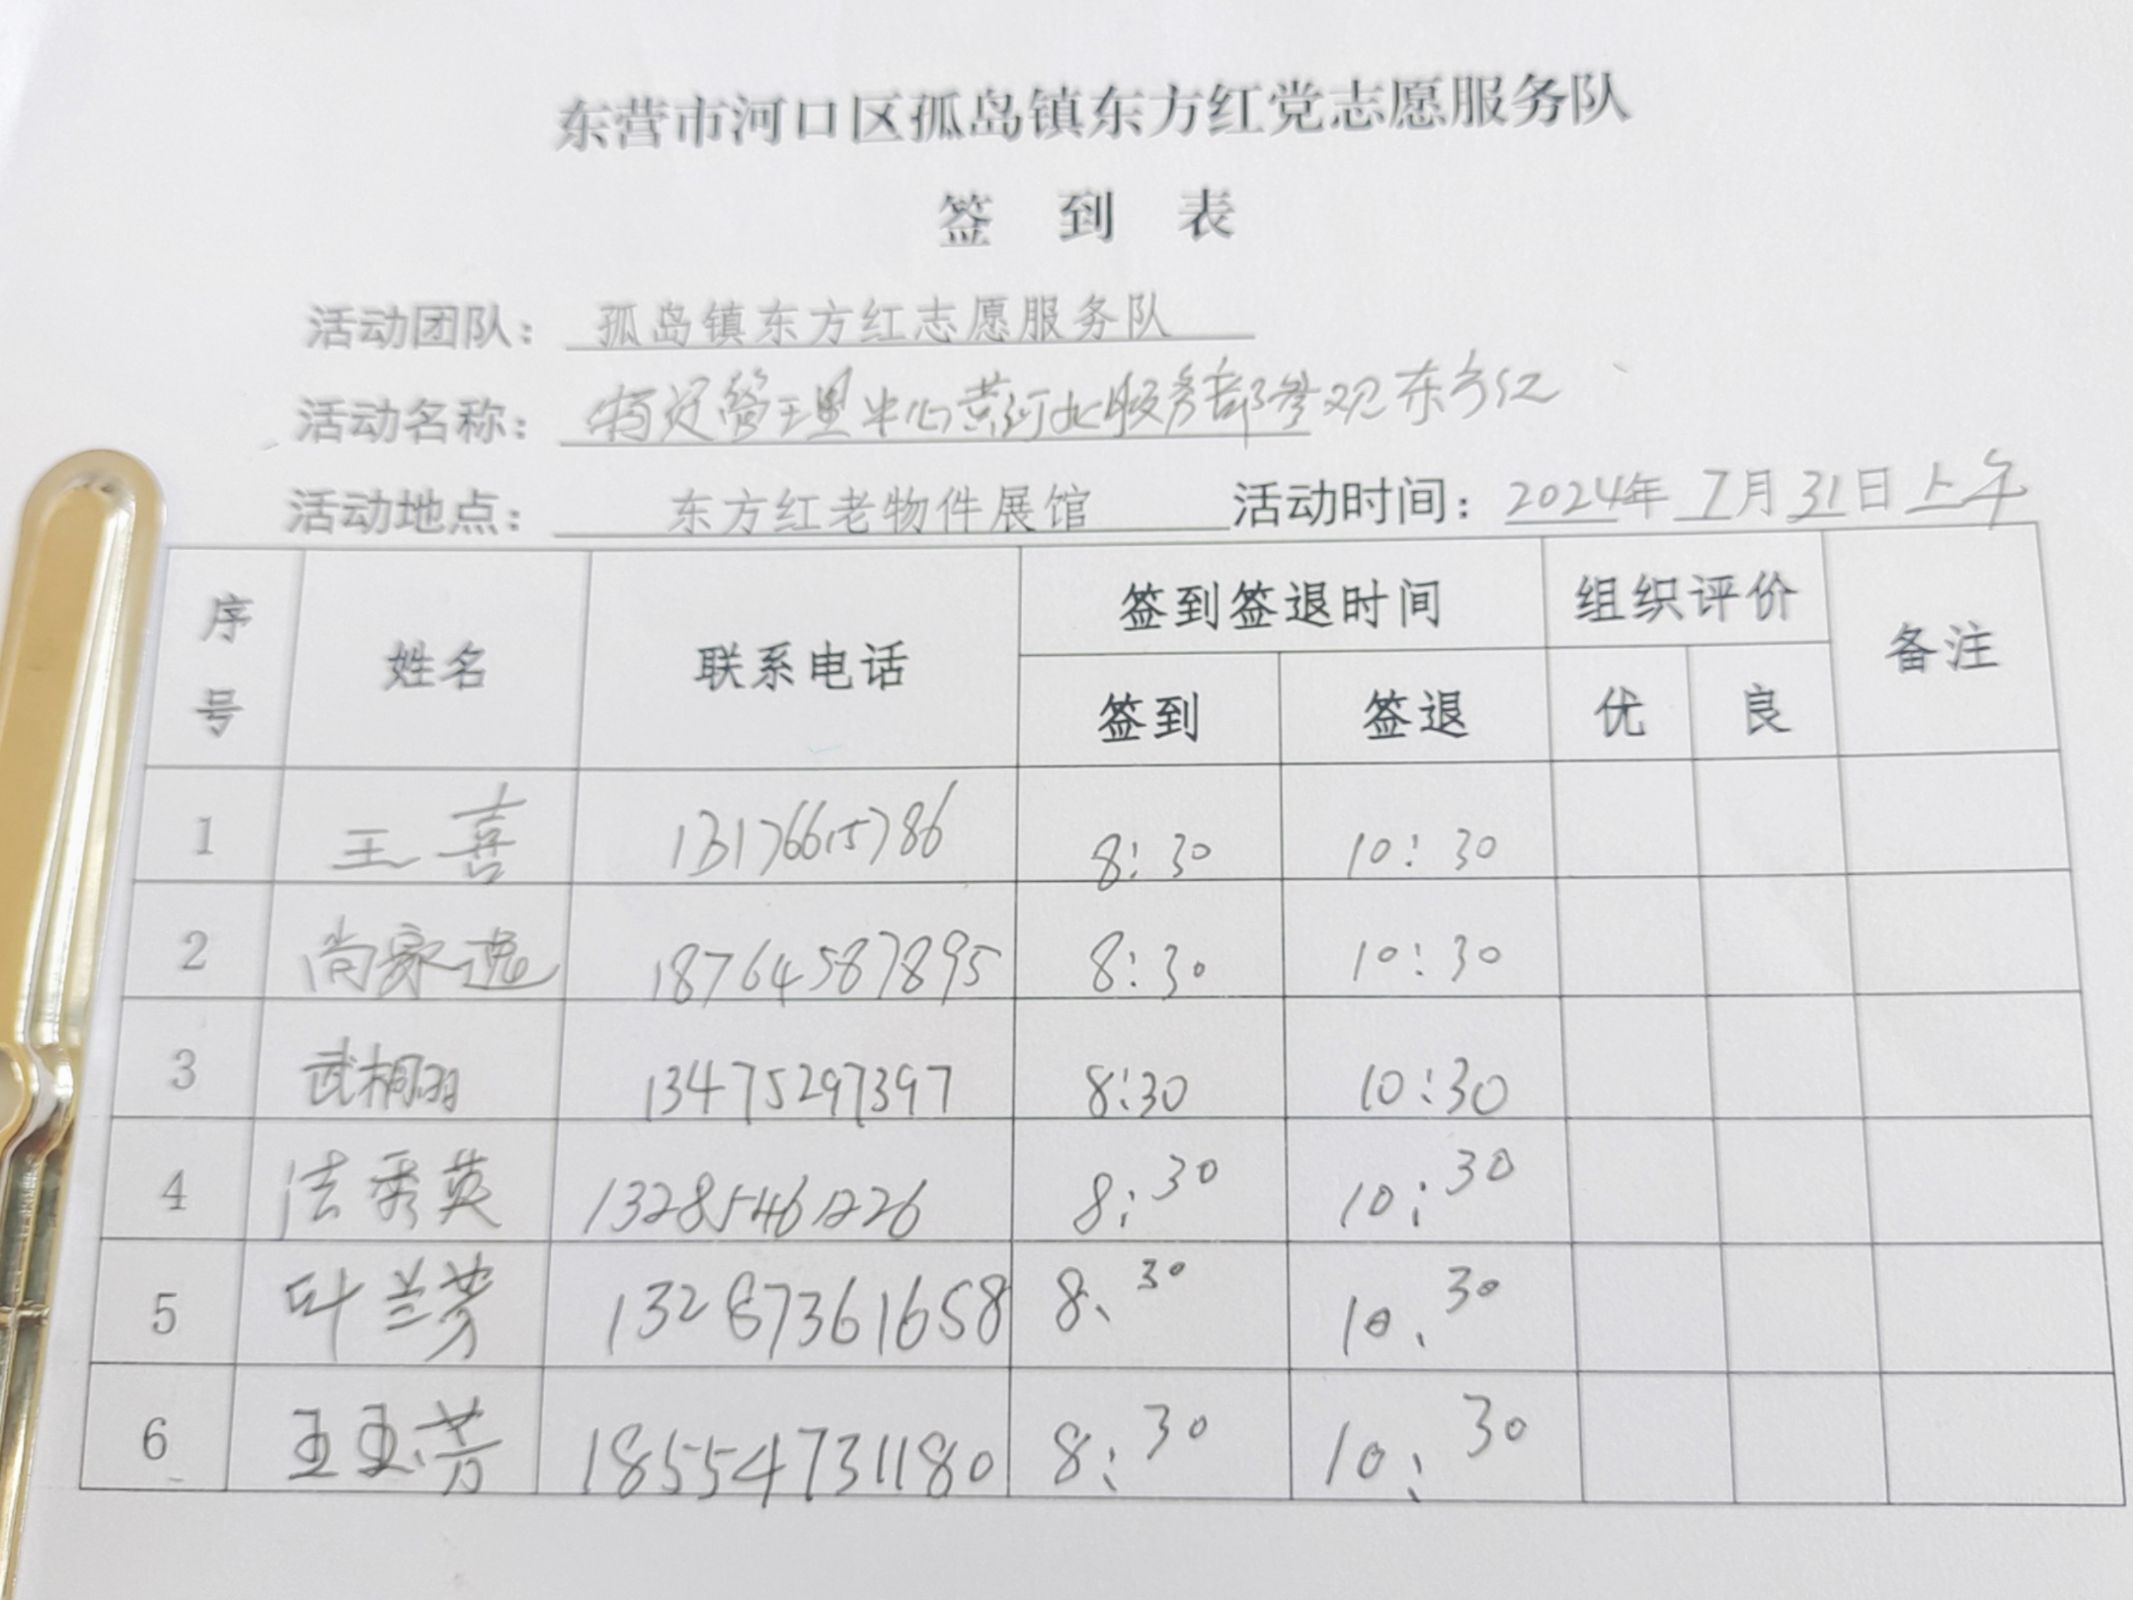 东营市河口区孤岛镇东方红党志愿服务队
签 到 表
活动团队： 孤岛镇东方红志愿服务队
活动名称： 管理中心黄河北服务部参观东方红
活动地点： 东方红老物件展馆 活动时间：2024年 7月 31日上午
序号 姓名 联系电话 签到签退时间 组织评价 备注
签到 签退 优 良
1 王喜 13176615786 8:30 10:30
2 尚家逸 18764587895 8:30 10:30
3 武桐羽 13475297397 8:30 10:30
4 法秀英 13285461226 8:30 10:30
5 叶兰芳 13287361658 8、30 10、30
6 王玉芳 18554731180 8:30 10:30